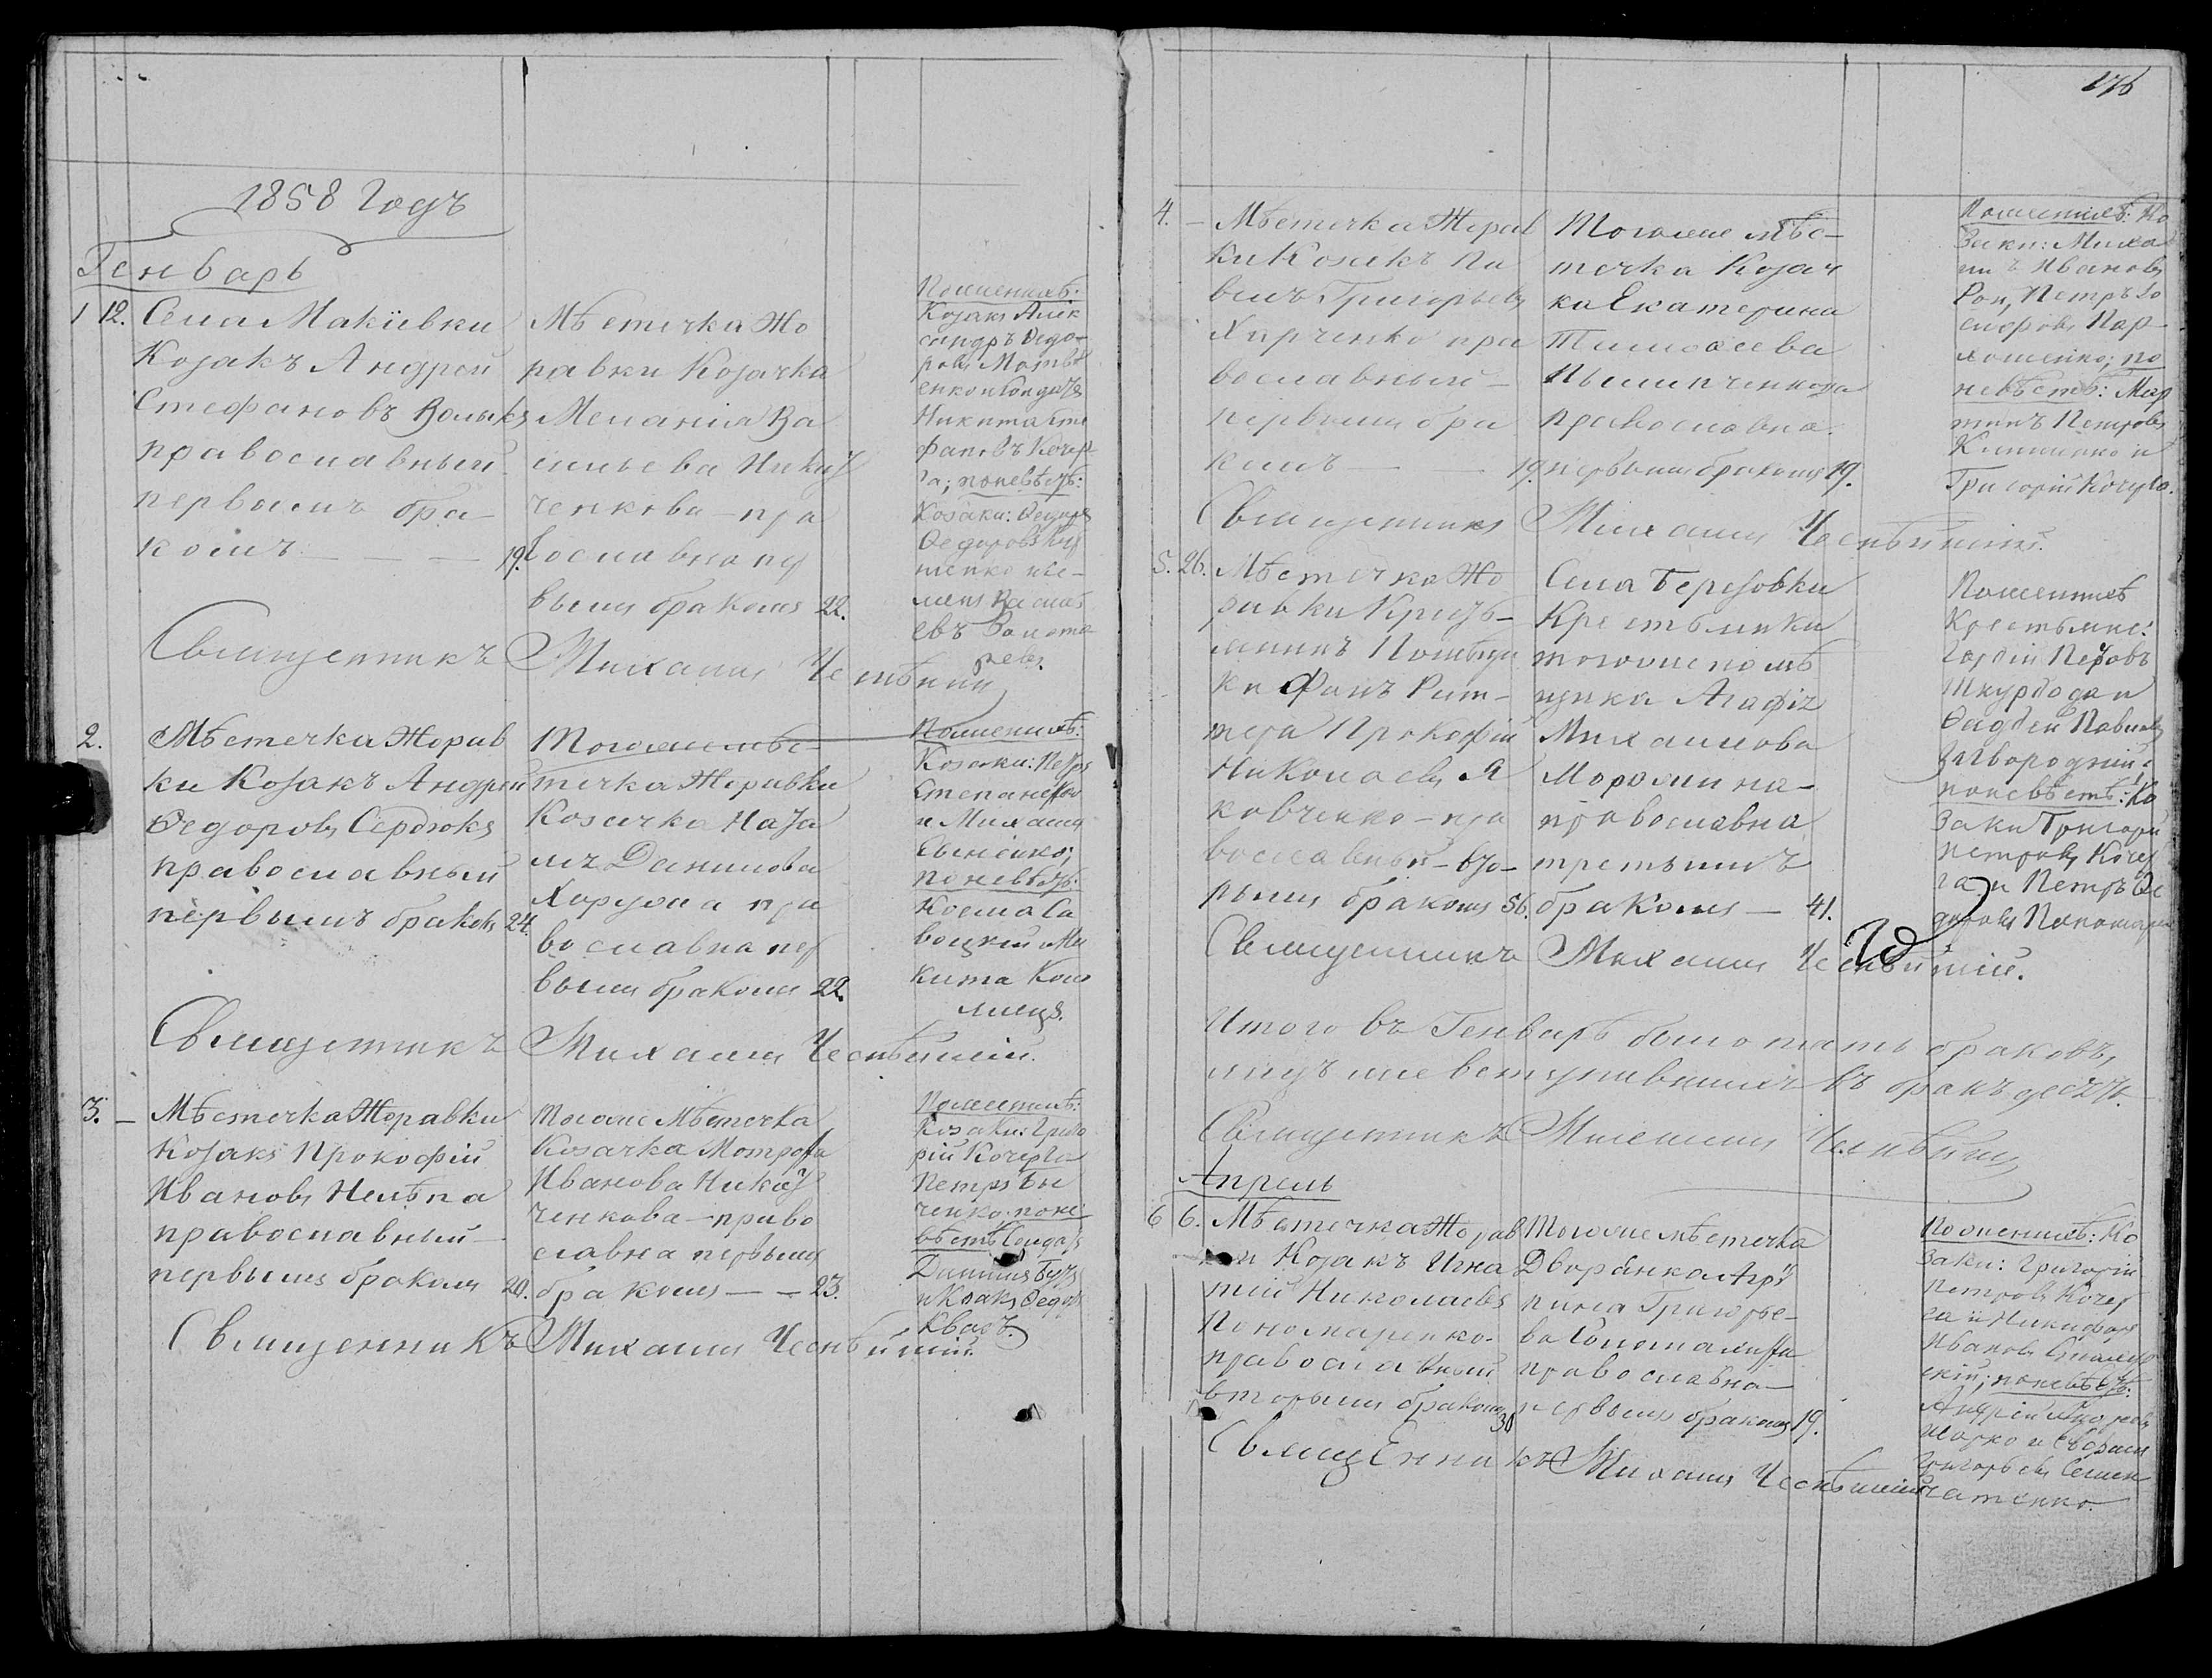 1858 Годъ
Генварь
1 12. Села Макіевки
Козакъ Андрей
Стефановъ Волыкъ
православный
первымъ бра-
комъ — — — 19.
Мѣстечка Жо
равки Козачка
Меланія Ва
сильева Никит
ченкова — пра
вославна пер
вымъ бракомъ 22.
По женихѣ:
Козакъ Алек
сандръ Ѳедо-
ровъ Матвѣ
енко и Солдатъ
Никита Сте
фановъ Кочер
га; по невѣстѣ:
Козаки: Ѳедоръ
Ѳедоровъ
Священникъ Михаилъ
2.
Мѣстечка Жорав
ки Козакъ Андрей
Ѳедоровъ Сердюкъ
православный
первымъ бракомъ 24.
Тогоже мѣс-
течка Жоравки
Козачка Ната
лія Данилова
Хорунжа пра
вославна пер
вымъ бракомъ 22.
По женихѣ:
Козаки: Петръ
и Михаилъ
по невѣстѣ:
Косма Са
воцкій и Ни
кита Коло
міецъ.
Священникъ Михаилъ
3. —
Мѣстечка Жоравки
Козакъ Прокофій
Ивановъ Нелѣпа
православный —
первымъ бракомъ 20.
Тогоже Мѣстечка
Козачка Мотрона
Иванова Никит
ченкова — право
славна первымъ
бракомъ — — 23.
По женихѣ:
Козаки: Григо
рій Кочерга
Петръ
по не
вѣстѣ Солдатъ
Даниилъ
и Козакъ Ѳедоръ
Квасъ.
Священникъ Михаилъ
176
4. —
Мѣстечка Жорав
ки Козакъ Па
велъ Григорьевъ
Харченко пра
вославный —
первымъ бра
комъ — — 19.
Тогоже мѣс-
течка Козач
ка Екатерина
Тимоѳеева
Пилипченкова
православна
первымъ бракомъ 19.
По женихѣ: Ко
заки: Миха
илъ Ивановъ
Петръ Іо
сифовъ Пар-
хоменко; по
невѣстѣ: Мар
тинъ Петровъ
Клименко и
Григорій Кочерга.
Священникъ Михаилъ
5. 26.
Мѣстечка Жо
равки Крестья-
нинъ Помѣщи
ка Фонъ Рит-
тера Прокофій
Николаевъ Я
ковченко — пра
вославный — вто-
рымъ бракомъ 56.
Села Березовки
Крестьянка
тогоже помѣ
щика Агафія
Михаилова
православна
третьимъ
бракомъ — 41.
По женихѣ
Крестьяне:
Гордій Петровъ
Шкурбода и
Фаддей Павловъ
Загвородній;
по невѣстѣ: Ко
заки Григорій
Петровъ Кочер
га и Петръ Ѳе
доровъ Пономарен
Священникъ Михаилъ
Итого въ Генварѣ было пять браковъ,
лицъ же вступившихъ въ бракъ десять.
Священникъ Михаилъ
Апрель
6 6.
Мѣстечка Жорав
ки Козакъ Игна
тій Николаевъ
Пономаренко —
православный
вторымъ бракомъ 30
Тогоже мѣстечка
Дворянка Агри
пина Григорье-
ва
православна —
первымъ бракомъ 19.
По женихѣ: Ко
заки: Григорій
Петровъ Кочер
га и Никифоръ
Ивановъ
скій; по невѣстѣ:
Андрей
Григорьевъ Семен
Священникъ Михаилъ